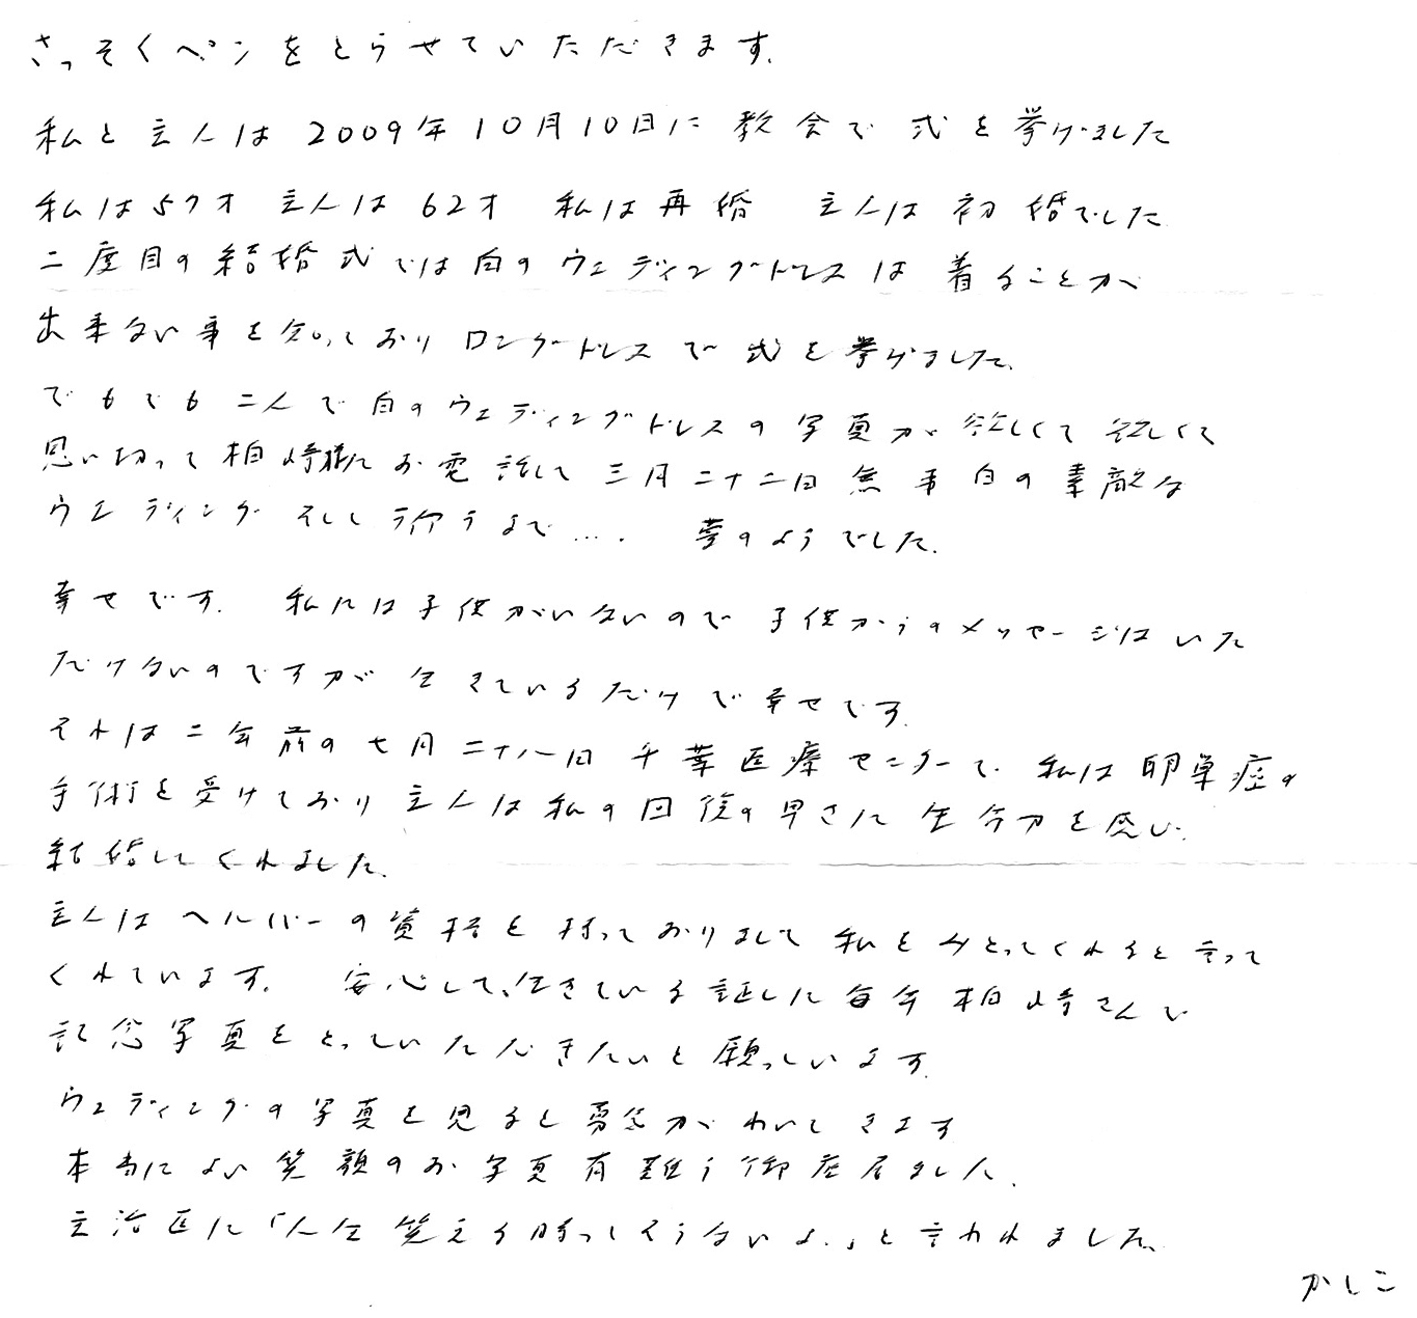 さっそくペンをとらせていただきます。
私と主人は2009年10月10日に教会で式を挙げました
私は57才 主人は62才 私は再婚 主人は初婚でした
二度目の結婚式では白のウェディングドレスは着ることが
出来ない事を知っておりロングドレスで式を挙げました。
でもでも二人で白のウェディングドレスの写真が欲しくて欲しくて
思い切って柏崎様にお電話して三月二十二日無事白の素敵な
ウエディング そして 行うまで…. 夢のようでした。
幸せです。 私には子供がいないので子供からのメッセージはいた
だけないのですが生きているだけで幸せです。
それは二年前の七月二十八日千葉医療センターで私は卵巣症の
手術を受けており主人は私の回復の早さに生命力を感じ
結婚してくれました。
主人はヘルパーの資格を持っておりまして私をみとってくれると言って
くれています。 安心して、生きている証しに毎年柏崎さんで
記念写真をとっていただきたいと願っています。
ウエディングの写真を見ると勇気がわいてきます
本当によい笑顔のお写真有難う御座居ました。
主治医に「人生笑える時ってそうないよ。」と言われました。
かしこ